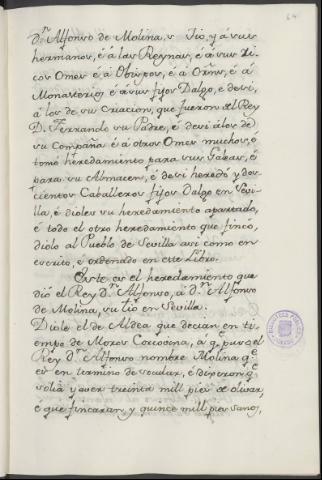 64
Dⁿ Alfonso de Molina, su Tio, y á sus
hermanos, é á las Reynas, é á sus Ri-
cos Omes é á Obispos, é á Ordⁿs, é á
Monasterios é á sus fijos Dalgo, e desi,
á los de su criacion, que fueron del Rey
D. Ferrando su Padre, é desi á los de
su Compaña é á otros Omes muchos, é
tomó heredamiento para sus Galeas, é
para su Almacen, é desi heredó y dos-
cientos Caballeros fijos Dalgo en Sevi-
lla, é dioles su heredamiento apartado,
é todo el otro heredamiento que fincó,
diólo al Pueblo de Sevilla asi como en
escrito, e ordenado en este Libro.
Este es el heredamiento que
dió el Rey Dⁿ Alfonso, á Dⁿ Alfonso
de Molina, su tio en Sevilla.
Diole el de Aldea que decian en ti-
empo de Moros Corcobina, á qᵉ puso el
Rey Dⁿ Alfonso nombre Molina qᵉ
es en termino de é dixeron qᵉ
solia y aver treinta mill pies de olivar,
e que fincaran y quince mill pies sanos,